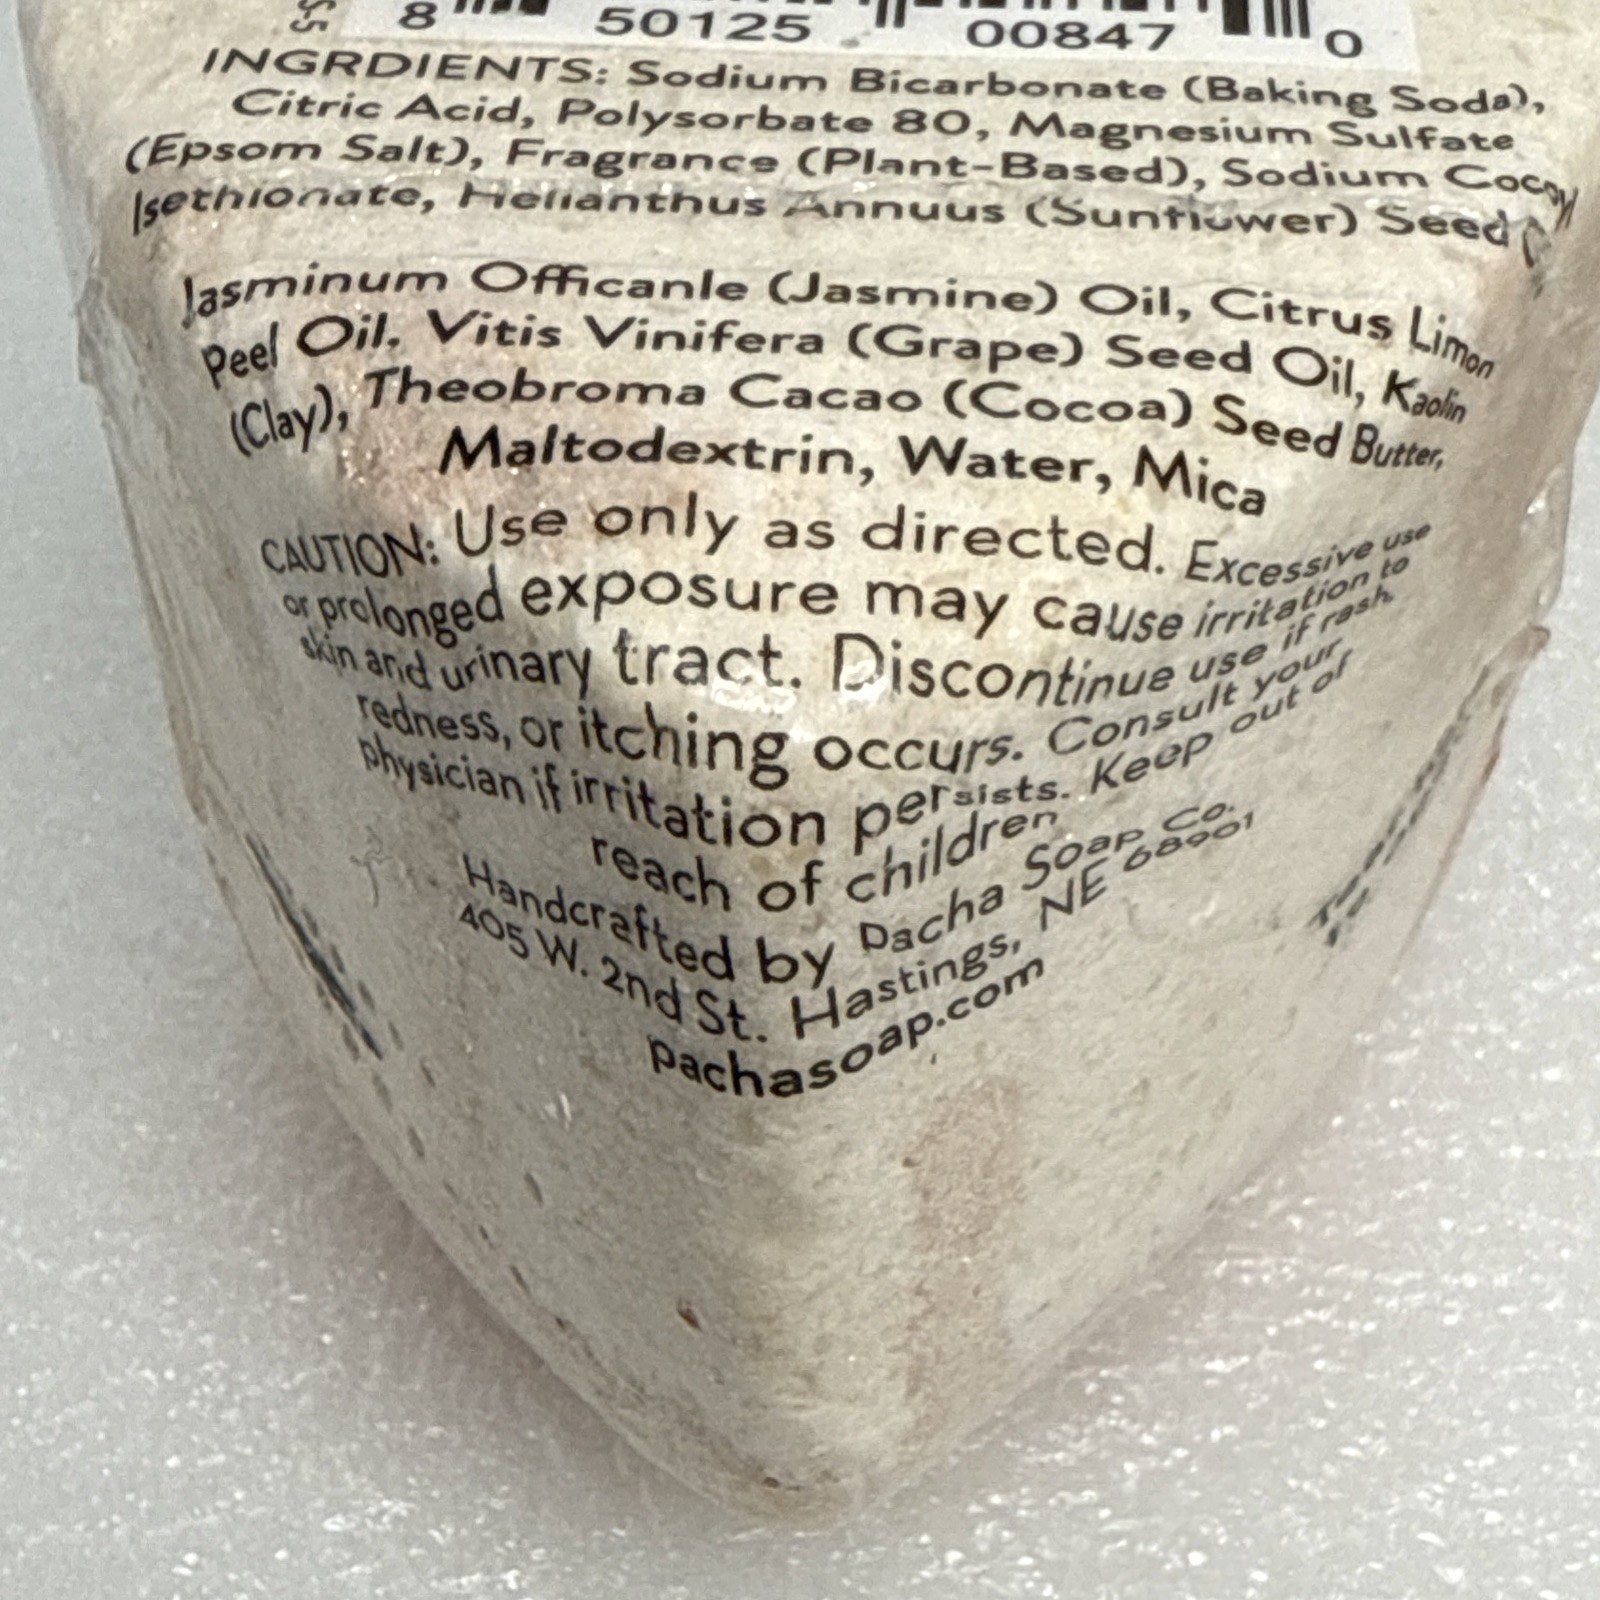 8 50125 00847 0
INGRDIENTS: Sodium Bicarbonate (Baking Soda),
Citric Acid, Polysorbate 80, Magnesium Sulfate
(Epsom Salt), Fragrance (Plant-Based), Sodium Cocoyl
Isethionate, Helianthus Annuus (Sunflower) Seed
Jasminum Officanle (Jasmine) Oil, Citrus Limon
Peel Oil, Vitis Vinifera (Grape) Seed Oil, Kaolin
(Clay), Theobroma Cacao (Cocoa) Seed Butter,
Maltodextrin, Water, Mica
CAUTION: Use only as directed. Excessive use
or prolonged exposure may cause irritation to
skin and urinary tract. Discontinue use if rash,
redness, or itching occurs. Consult your
physician if irritation persists. Keep out of
reach of children
Handcrafted by Pacha Soap Co.
405 W. 2nd St. Hastings, NE 68901
pachasoap.com